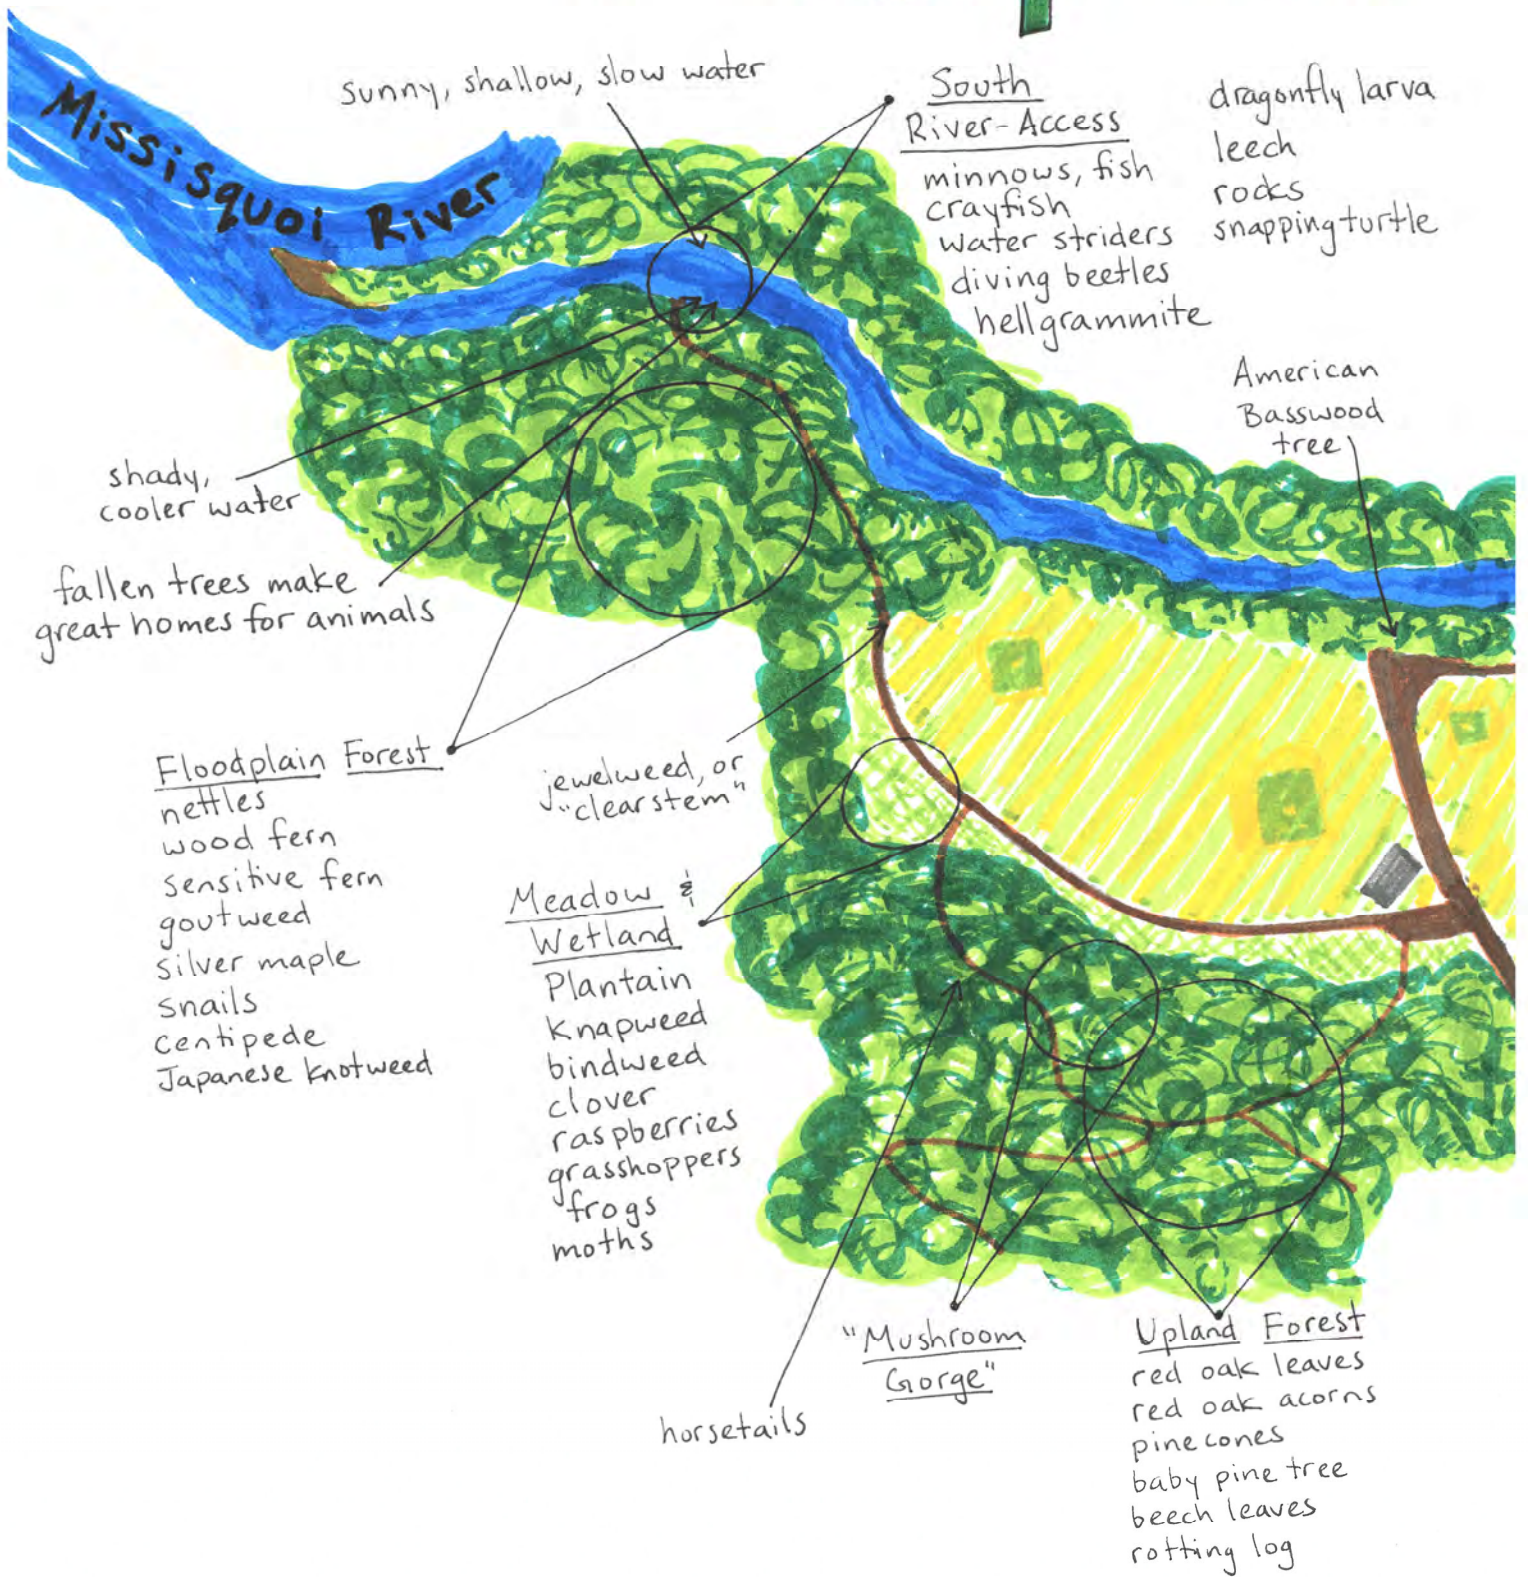 Missisquoi River
sunny, shallow, slow water
South
River-Access
minnows, fish
crayfish
water striders
diving beetles
hellgrammite
dragonfly larva
leech
rocks
snapping turtle
American
Basswood
tree
shady,
cooler water
fallen trees make
great homes for animals
Floodplain Forest
nettles
wood fern
sensitive fern
goutweed
silver maple
snails
centipede
Japanese knotweed
jewelweed, or
"clearstem"
Meadow &
Wetland
Plantain
Knapweed
bindweed
clover
raspberries
grasshoppers
frogs
moths
horsetails
"Mushroom
Gorge"
Upland Forest
red oak leaves
red oak acorns
pinecones
baby pine tree
beech leaves
rotting log